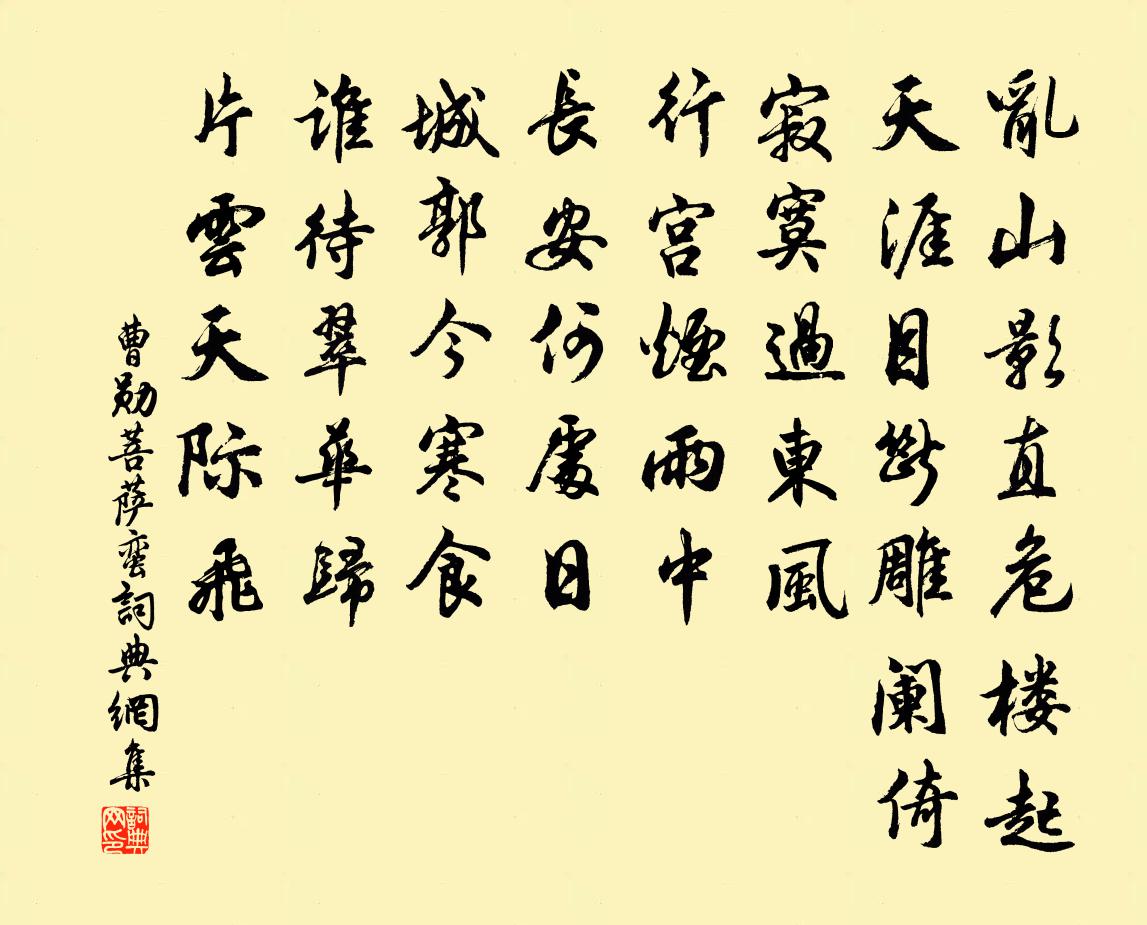 亂山影直危楼起
天涯目斷雕阑倚
寂寞過東風
行宫煙雨中
長安何處日
城郭今寒食
誰待翠華歸
片雲天际飛
曹勋菩萨蛮詞典網集
詞典网印